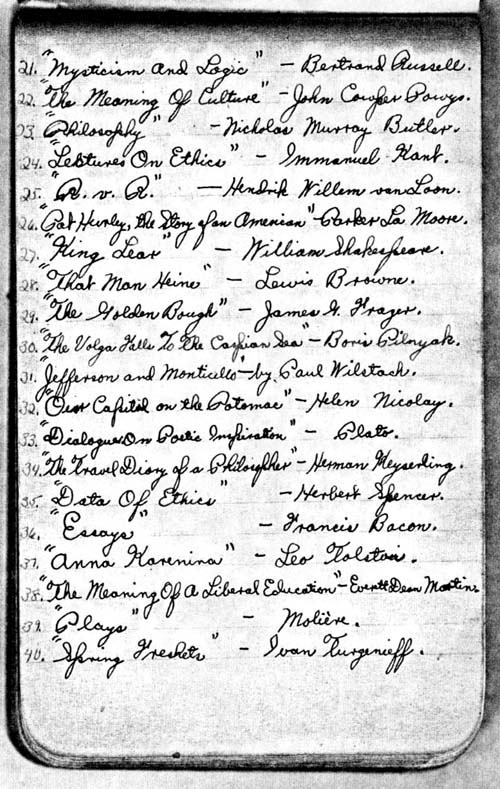 21. "Mysticism And Logic" — Bertrand Russell.
22. "The Meaning Of Culture" - John Cowper Powys.
23. "Philosophy" - Nicholas Murray Butler.
24. "Lectures On Ethics" - Immanuel Kant.
25. "R. v. R." — Hendrik Willem van Loon.
26. "Pat Hurley, the Story of an American" - Parker La Moore.
27. "King Lear" — William Shakespeare.
28. "That Man Heine" — Lewis Browne.
29. "The Golden Bough" — James G. Frazer.
30. "The Volga Falls To The Caspian Sea" - Boris Pilnyak.
31. "Jefferson and Monticello" - by Paul Wilstach.
32. "Our Capital on the Potomac" - Helen Nicolay.
33. "Dialogue On Poetic Inspiration" - Plato.
34. "The Travel Diary of a Philosopher" - Herman Keyserling.
35. "Data Of Ethics" - Herbert Spencer.
36. "Essays" - Francis Bacon.
37. "Anna Karenina" - Leo Tolstoi.
38. "The Meaning Of A Liberal Education" - Everett Dean Martin.
39. "Plays" - Molière.
40. "Spring Freshets" - Ivan Turgenieff.